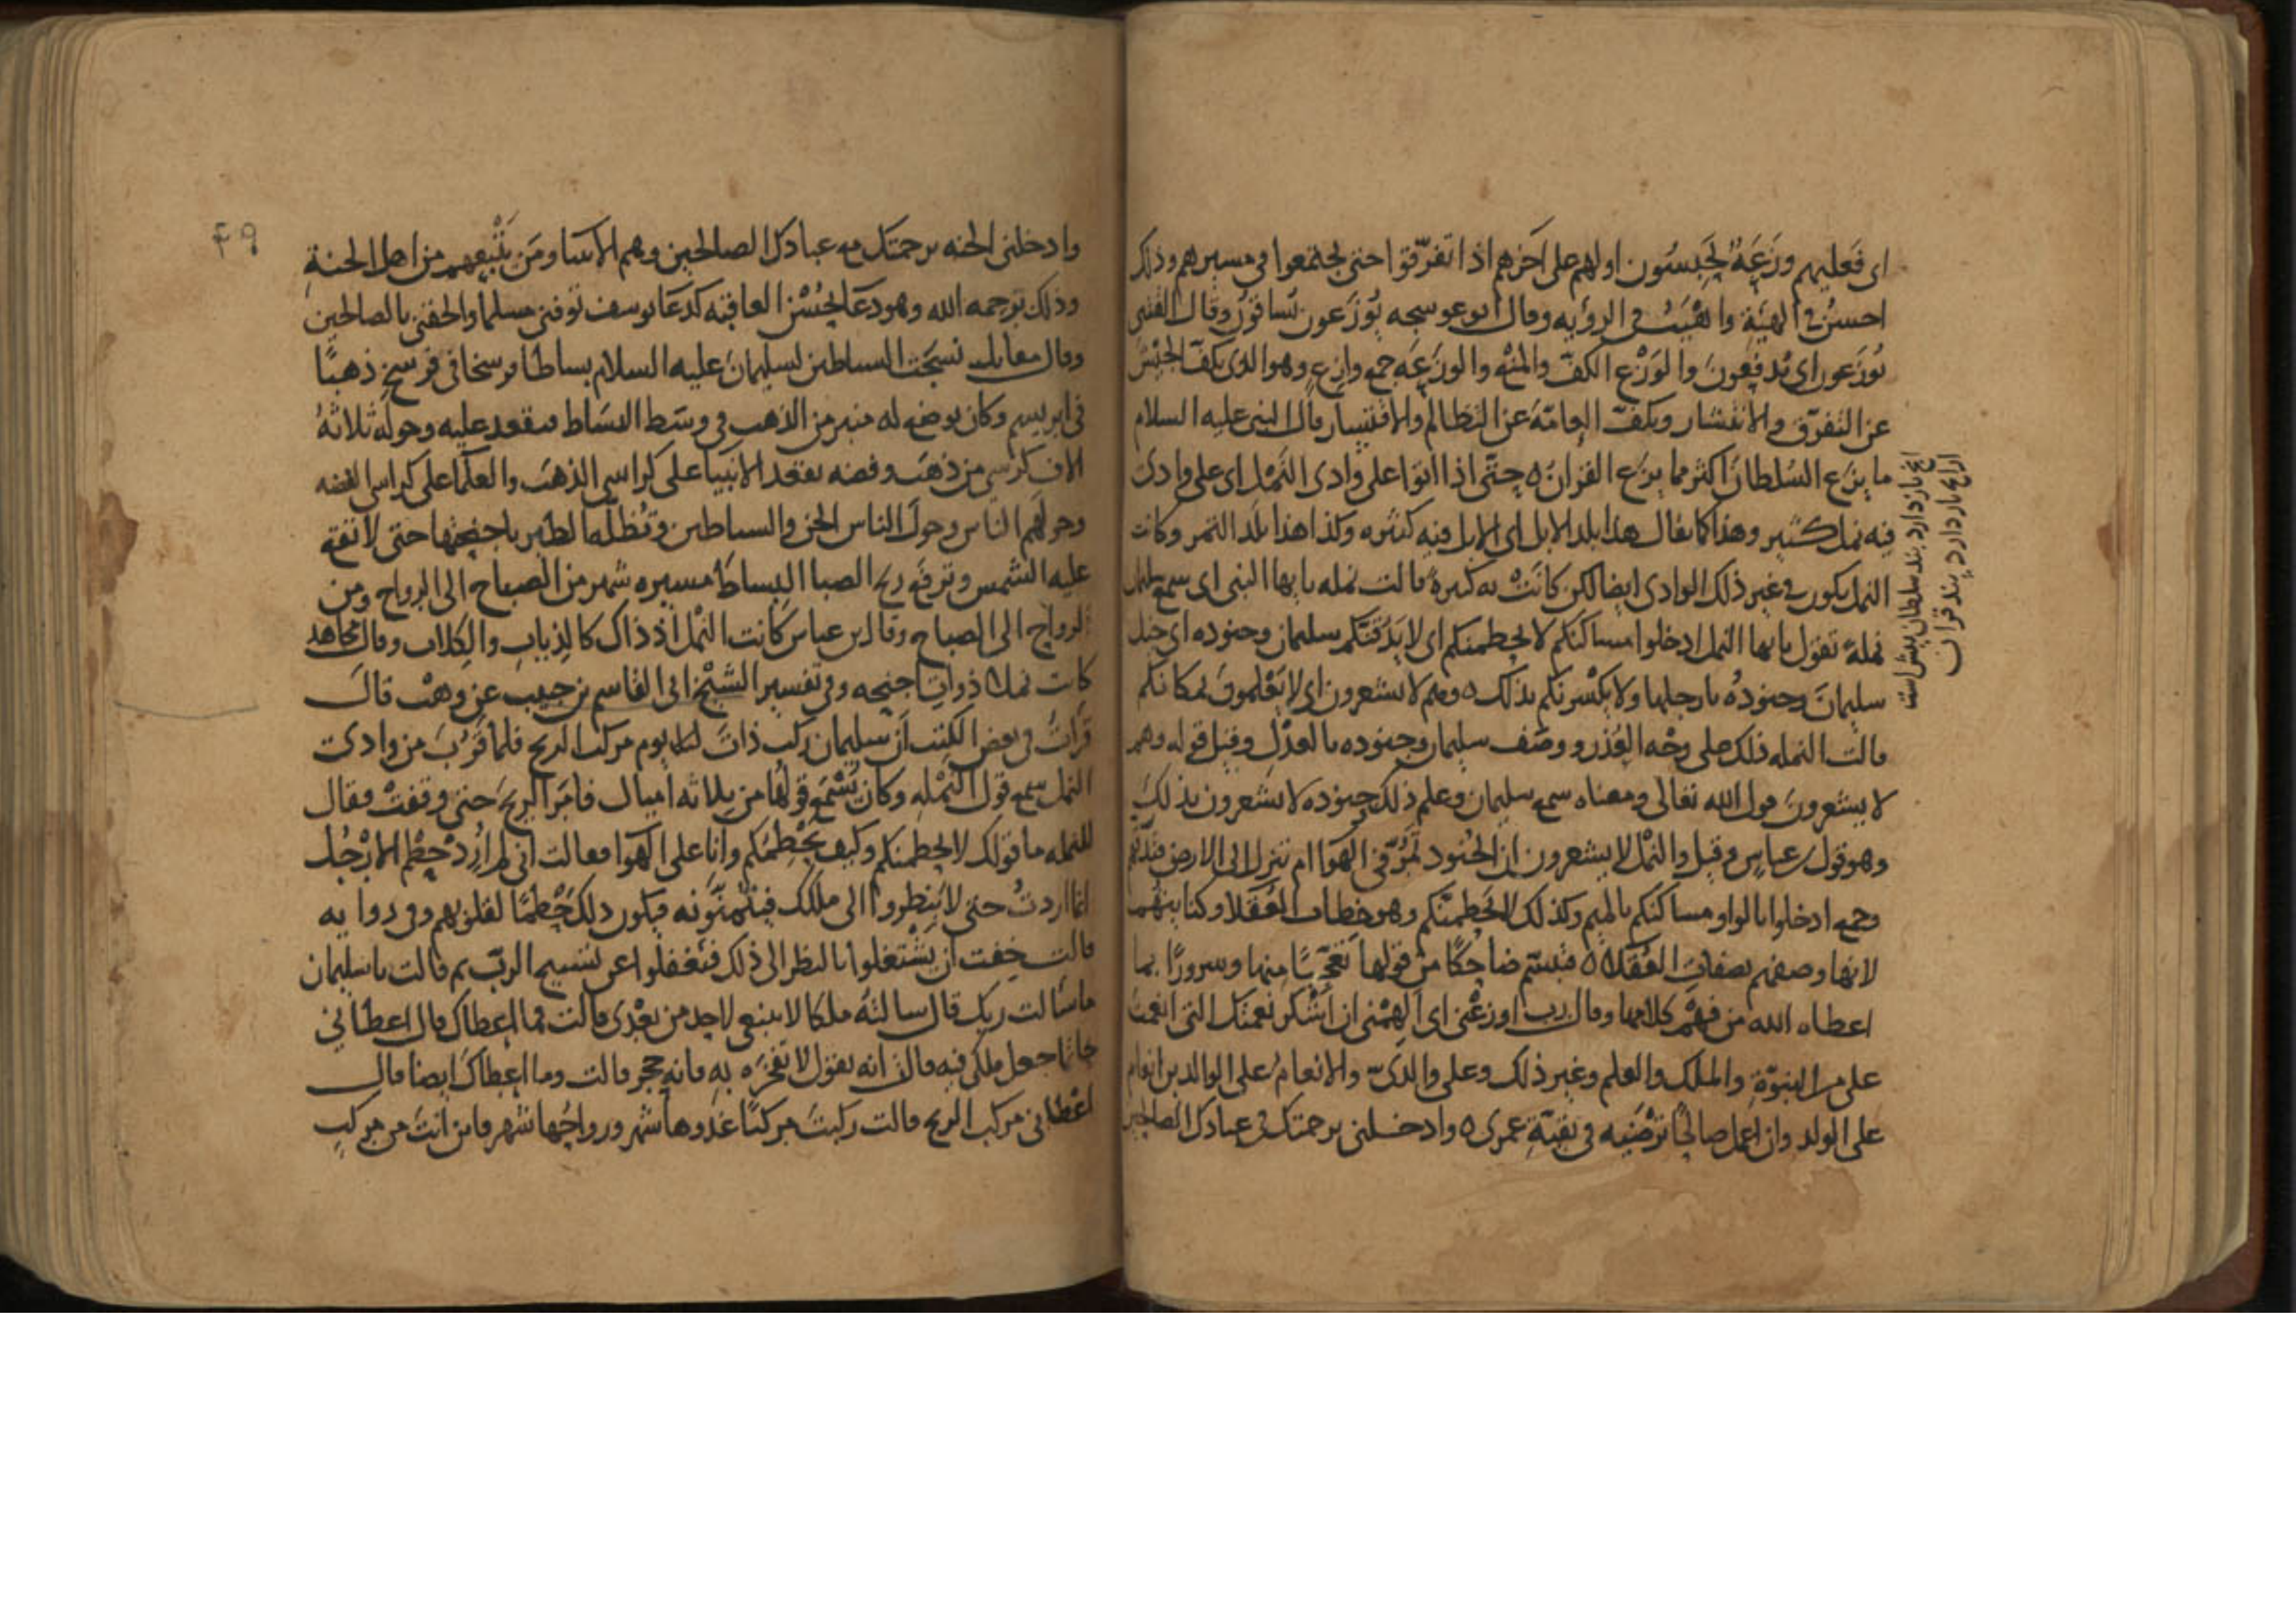 اى فعليهم وَزَعَةٌ يَحبِسُون اولهم على آخرهم اذا تفرّقوا حتى يجتمعوا فى مسيرهم وذلك
احسنُ فى الهيئةِ واهْيَبُ فى الرؤيه وقال ابو عوسجه يُوزَعون يُساقونَ وقال القتبى
يُوزَعون اى يُدفَعونَ والوَزْع الكفّ والمنْع والوزَعَه جمع وازِعٍ وهو الذى يكفّ الجَيْش
عن التفرّق والانتشار ويكفّ العامّةَ عن التظالم والافتسار قال النبى عليه السلام
ما يزَع السُلطانُ اكثر مما يزَع القرانُ ه حتّى اذا اتوا على وادى النَمْل اى على وادى
فيه نمل كثير وهذا كما يقال هذا بلد الابل اى الابل فيه كثيره وكذا هذا بلد التمر وكانت
النمل يكون فى غير ذلك الوادى ايضا لكن كانَتْ به كثيرةً قالت نمله يا يها النمل اى سمع سليمان
نملةً تقول يا يها النمل ادخلوا مساكنكم لا يحطمنكم اى لا يَدُقّنّكم سليمان وجنوده اى خيل
سليمانَ وجنودُه بارجلها ولا يكْسرنكم بذلك ه وهم لا يشعرون اى لا يَعْلمونَ بمكانكم
قالت النمله ذلك على وجْه العُذر ووصَف سليمان وجنوده بالعدْل وقيل قوله وهم
لا يشعرونَ قول الله تعالى ومعناه سمع سليمان وعلم ذلك جنوده لا يشعرون بذلكَ
وهو قول بن عباسٍ وقيل والنمْل لا يشعرون انّ الجُنود تَمُرّ فى الهَوَا ام تنزل الى الارض فتدقّهم
وجمع ادخلوا بالواو ومساكنكم بالميم وكذلك لا يَحْطِمنّكم وهو خِطاب العُقَلا وكنايتهُم
لانها وصفهم بصفات العُقَلا ه فتبسّم ضاحِكًا من قولها تَعَجّبًا منها وسرورًا بما
اعطاه الله من فَهْم كلامها وقال رب اوزِعْنى اى اَلهِمْنى ان اشْكر نعمتك التى انعمتَ
علىّ من النبوّةِ والملك والعلم وغير ذلك وعلى والدىّ والانعام على الوالدين انعام
على الولد وان اعمل صالحًا تَرْضَيه فى بقيّةِ عمرى ه وادخلنى برحمتك فى عبادك الصالحين
ما يزع باز دارد بند سلطان بيش است
از انچ باز دارد پند قران
٤٩
وادخلنى الجنه برحمتك مع عبادك الصالحين وهم الانبيا ومَن يَتْبَعهم من اهل الجنةِ
وذلك برحمه الله وهو دعَا بحُسْن العاقبه كدعَا يوسف توفنى مسلما والحقنى بالصالحين
وقال مقاتل نسجَت الشياطين لسليمانَ عليه السلام بساطًا فرسخا فى فرسخ ذهبًا
فى ابريسم وكان يوضع له منبر من الذهب فى وسَط البسَاط فيقعد عليه وحوله ثلاثهُ
الاف كرسى من ذهب وفضه يقعد الانبيا على كراسى الذهب والعلما على كراسى الفضه
وحولهم الناس وحولَ الناس الجن والشياطين وتُظلّه الطير باجنحتها حتى لا تقع
عليه الشمس وترفع ريح الصبا البساطَ مسيره شهر من الصباح الى الرواح ومن
الرواح الى الصباح وقال بن عباس كانت النمْل اذ ذاك كالذباب والكلاب وقال مجاهد
كانت نملا ذوات اجنحه وفى تفسير الشيْخ ابى القاسم بن حبيب عن وهبٍ قالَ
قرَأتُ فى بعض الكتب اَنّ سليمان ركب ذاتَ يوم مركب الريح فلما قَرُبَ من وادى
النمل سمع قول النمْله وكان يَسْمَع قولها من ثلاثه اميال فامَر الريحَ حتى وقفتْ فقال
للنمله ما قولك لا يحطمنكم وكيف يَحْطِمُكم وانا على الهَوَا فقالت انى لم اُرِدْ حَطْم الارْجُل
انما اردتُ حتى لا يَنظروا الى ملكك فيتمنّونه فيكون ذلك حَطمًا لقلوبهم وفى روايه
قالت خِفت ان يَشْتغلوا بالنظر الى ذلك فيَغفلوا عن تسبيح الربّ ثم قالت يا سليمان
ما سَالت ربك قال سالتهُ ملكا لا ينبغى لاحد من بعْدى قالت فما اعطاك قال اعطانى
خاتما جعل ملكى فيه قالت انه يقول لا تفخَر به فانه حجر قالت وما اعطاك ايضا قال
اعْطانى مركب الريح قالت ركبتَ مركبًا غدوها شهر ورواحُها شهر فاين انتَ من مركبٍ